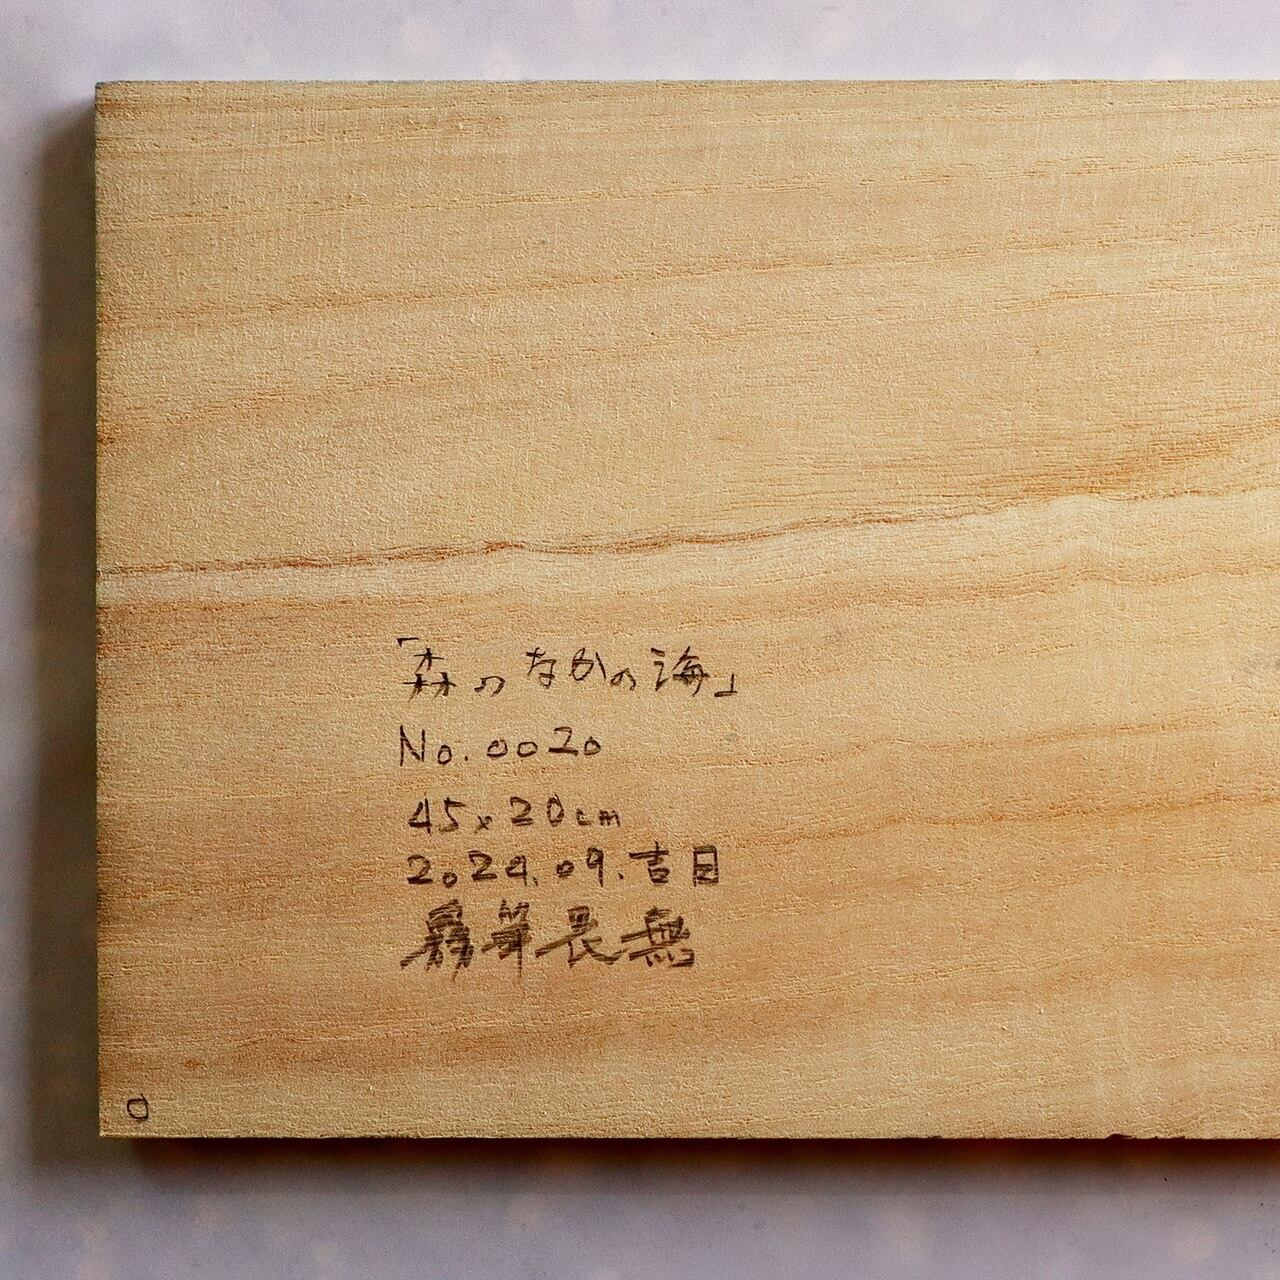 「森のなかの海」
No.0020
45x20cm
2024.09.吉日
長無